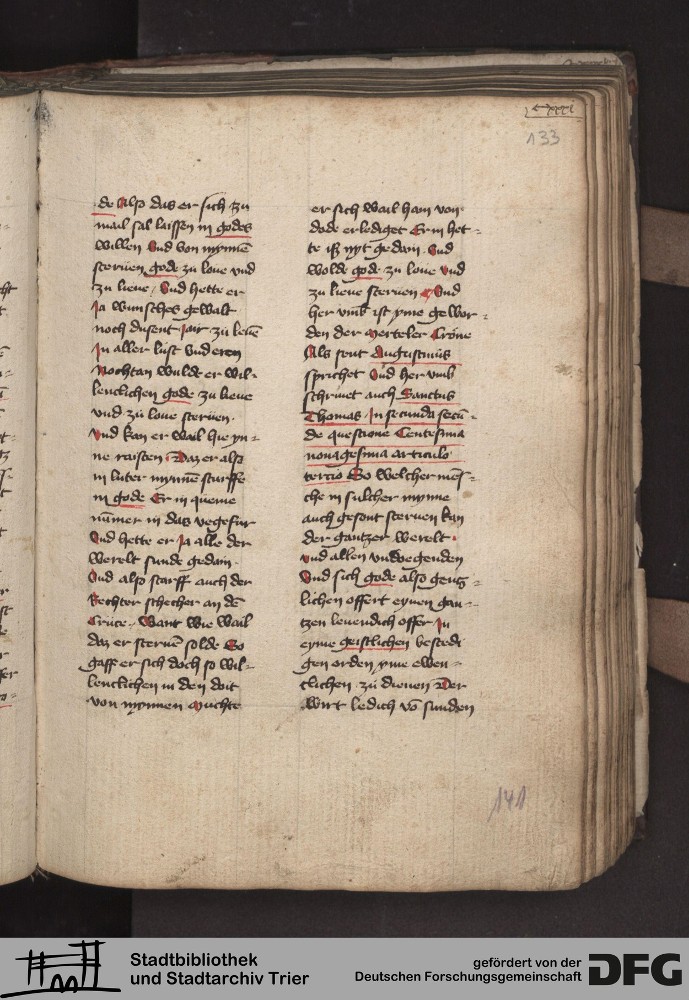 cxxxi
133
de Also das er sich zu
mail sal laissen in godes
willen Vnd von mynnē
steruen gode zu loue vnd
zu lieue / Vnd hette er
Ja wunsches gewalt
noch dusent Jair zu leuē
In aller lust vnd eren
Nochtan wulde er wil-
lenclichen gode zu lieue
vnd zu loue steruen.
Vnd kan er wail hie yn-
ne Daz er also
in luter mynnē sturffe
in gode Er in queme
nūmer in daz vegefur
Vnd hette er Ja alle der
werelt sunde gedain.
Vnd also starff auch der
Rechter schecher an dē
Cruce. Want wie wail
daz er steruē solde So
gaff er sich doch so wil-
lenclichen in den doit
von mynnen Muchte
er sich wail hain von
dode erlediget Er in het-
te iß nyt gedain. Vnd
wolde gode zu loue vnd
zu lieue steruen Vnd
her vmb ist yme gewor-
den der Merteler Crone
Als sent Augustinus
sprichet Vnd her vmb
schriuet auch Sanctus
Thomas In secunda secū-
de questione Centesima
nonagesima articulo
tercio So welcher mēs-
che in sulcher mynne
auch gesont steruen kan
der gantzer werelt.
vnd allen
Vnd sich gode also gentz-
lichen offert eynen gan-
tzen leuendich offer In
eyme geistlichen bestedi
gen orden yme ewen-
clichen zu dienen Der
wirt ledich vō sunden
141
Stadtbibliothek
und Stadtarchiv Trier
gefördert von der
Deutschen Forschungsgemeinschaft
DFG